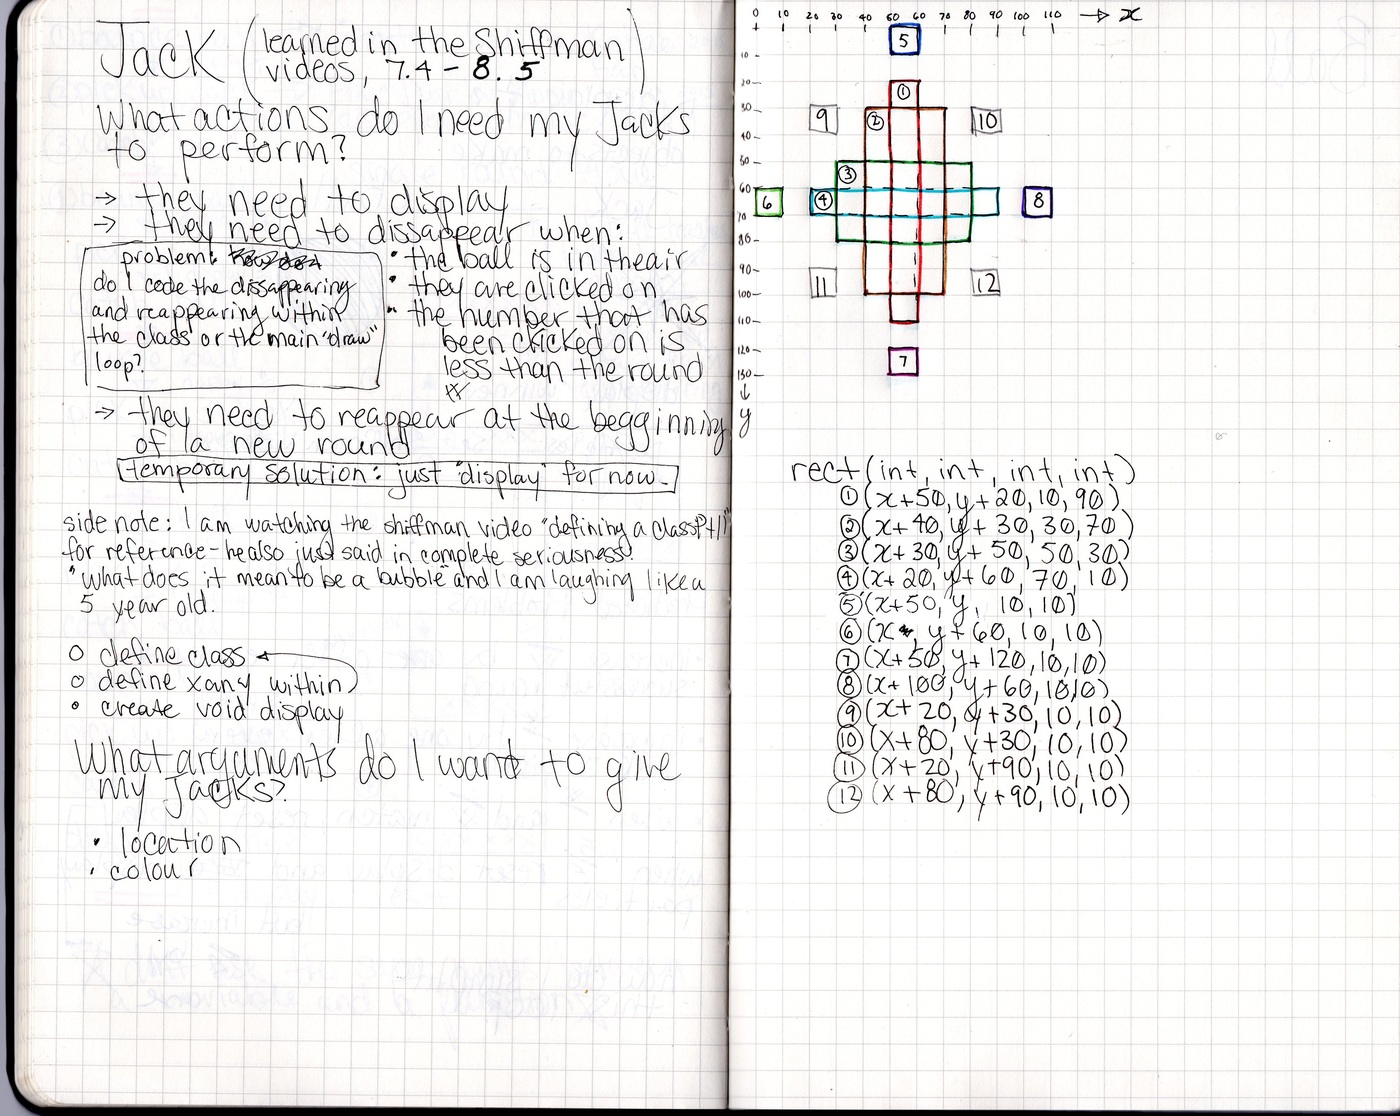 Jack (learned in the Shiffman
videos, 7.4 - 8.5)
What actions do I need my Jacks
to perform?
→ they need to display
→ they need to dissapear when:
• the ball is in the air
• they are clicked on
• the number that has
been clicked on is
less than the round
problem:
do I code the dissappearing
and reappearing within
the class or the main "draw"
loop?
→ they need to reappear at the begginning
of a new round
temporary solution: just "display" for now.
side note: I am watching the shiffman video "defining a class Pt 1"
for reference - he also just said in complete seriousness
"what does it mean to be a bubble" and I am laughing like a
5 year old.
o define class
o define x any within
• create void display
What arguments do I want to give
my Jacks?
• location
• colour
0 10 20 30 40 50 60 70 80 90 100 110 → x
10
20
30
40
50
60
70
80
90
100
110
120
130
↓
y
5
1
9 2 10
3
6 4 8
11 12
7
rect(int, int, int, int)
① (x+50, y+20, 10, 90)
② (x+40, y+30, 30, 70)
③ (x+30, y+50, 50, 30)
④ (x+20, y+60, 70, 10)
⑤ (x+50, y, 10, 10)
⑥ (x, y+60, 10, 10)
⑦ (x+50, y+120, 10, 10)
⑧ (x+100, y+60, 10, 10)
⑨ (x+20, y+30, 10, 10)
⑩ (x+80, y+30, 10, 10)
⑪ (x+20, y+90, 10, 10)
⑫ (x+80, y+90, 10, 10)